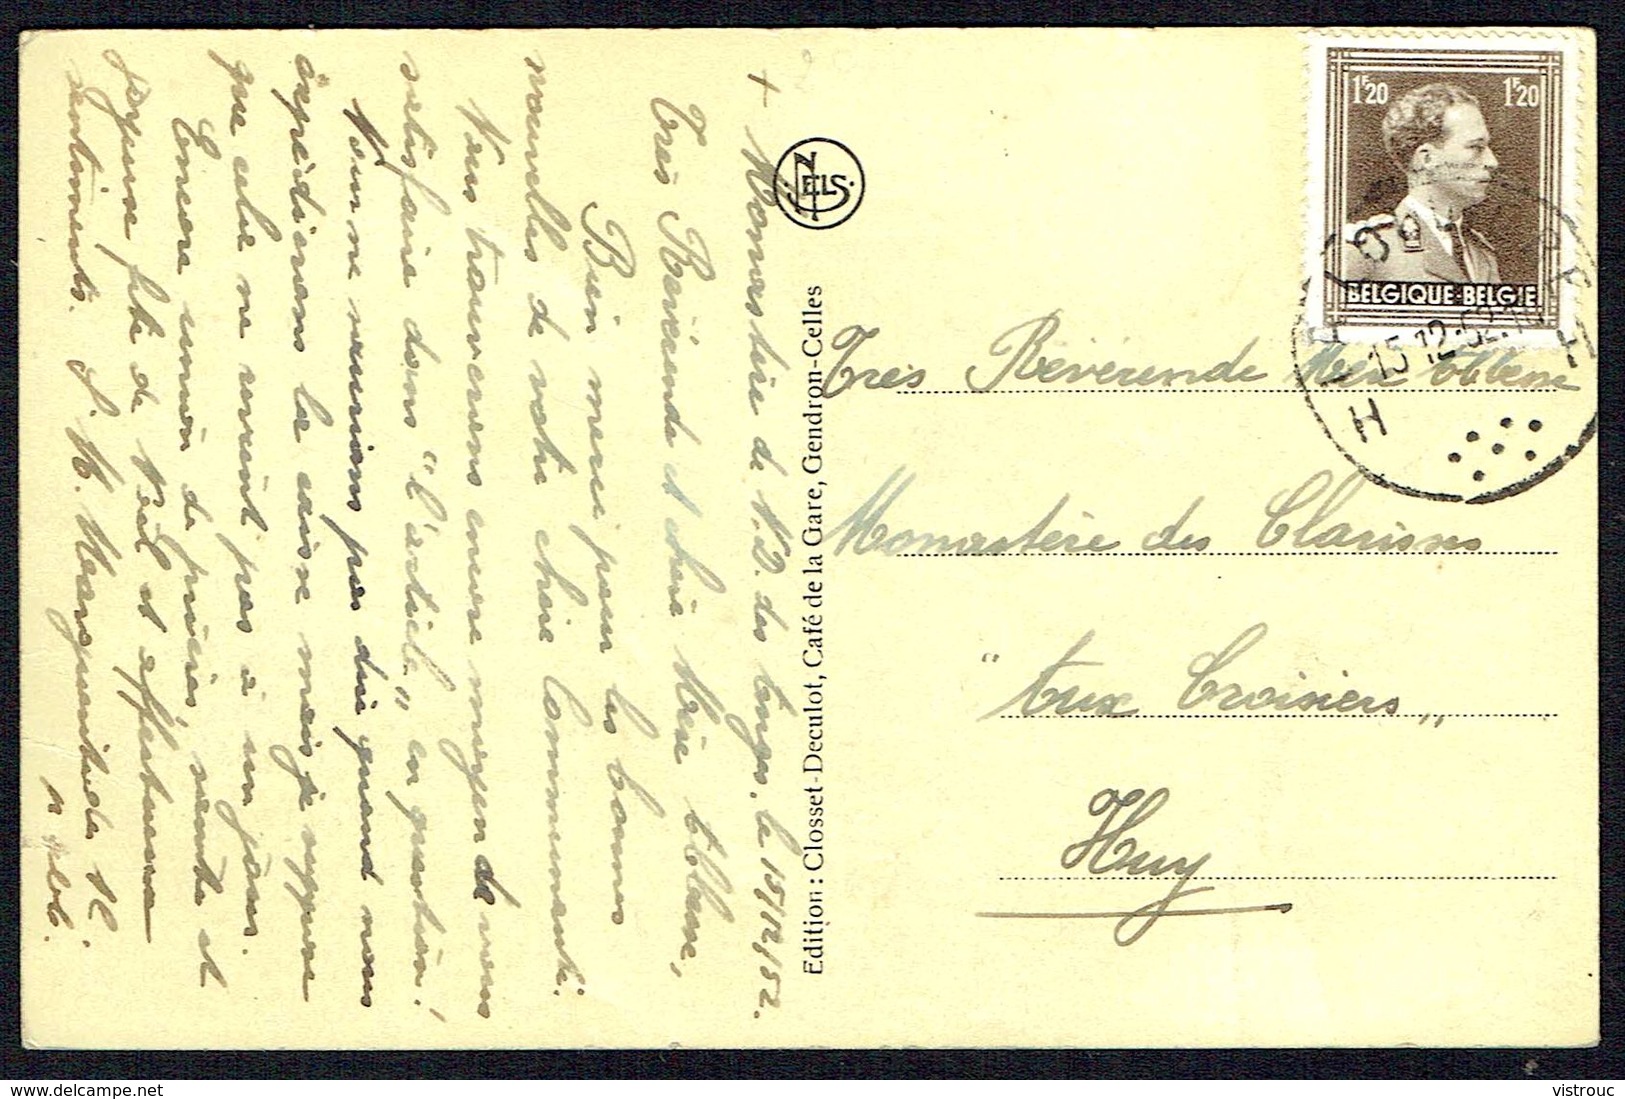 + Monastère de N.D. des Anges, le 15/12/52.
Très Révérende et chère Mère Abbesse,
Bien merci pour les bonnes
nouvelles de votre chère Communauté.
Nous trouverons encore moyen de vous
satisfaire dans "l'article" en question!
Nous ne saurions pas dire quand nous
expédierons la caisse mais je suppose
que cela ne revient pas à un jour.
Encore union de prières, sainte et
joyeuse fête de Noël et affectueux
sentiments. S. M. Marguerite
NELS
Edition: Closset-Deculot, Café de la Gare, Gendron-Celles
1F20 1F20
BELGIQUE·BELGIE
15-12-52
H H
Très Révérende Mère Abbesse
Monastère des Clarisses
"Aux Croisiers"
Huy
vistrouc